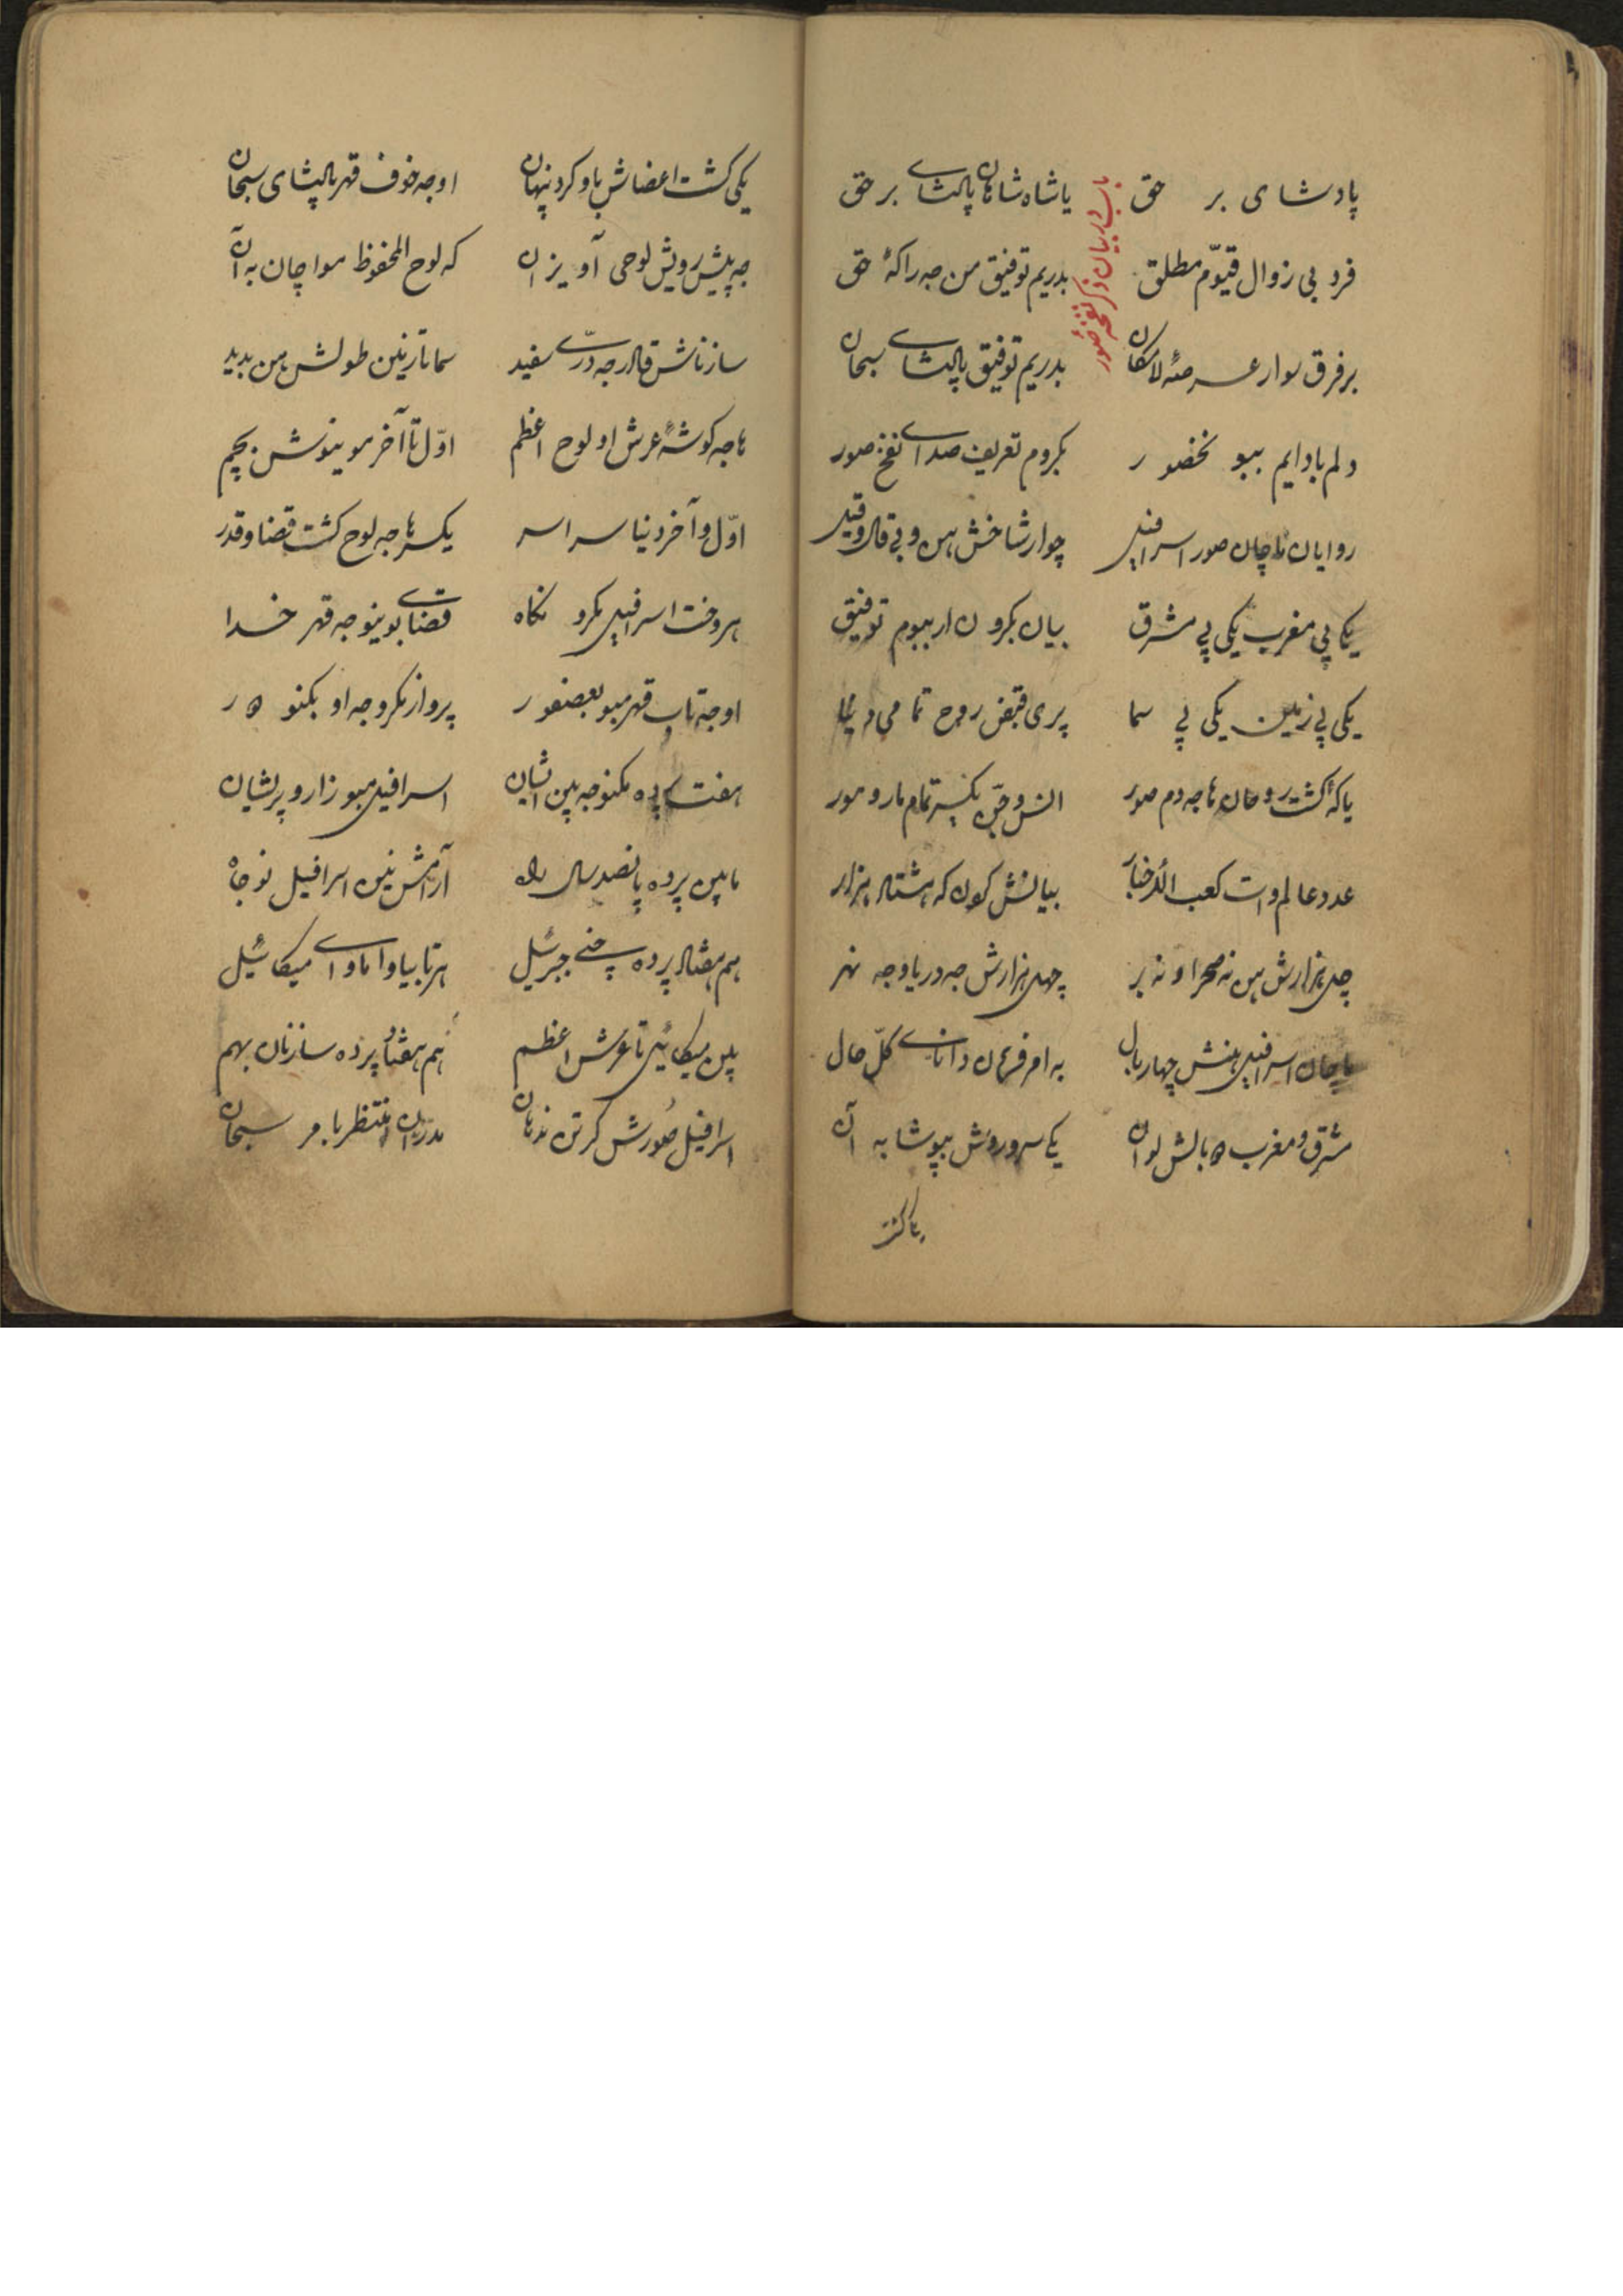 باب در بیان ذکر نفخه صور
پادشای بر حق یا شاه شاهان پالشای بر حق
فرد بی زوال قیّوم مطلق بدریم توفیق من جه راکهٔ حق
بر فرق سوار عرصهٔ لامکان بدریم توفیق پالشای سبحان
ولم با دایم ببو بحضور بکروم تعریف صدای نفخ صور
روایان ماچان صور اسرافیل چوار شاخش هن و بی قال و قیل
یکی پی مغرب یکی پی مشرق بیان بکرون ار ببوم توفیق
یکی پی زمین یکی پی سما پری قبض روح تمامی دنیا
یاکهٔ کشت روحان ها جه دم صور انس و جن یکسر تمام مار و مور
عدد عالم وات کعب الاخبار بیانش کون که هشتاد هزار
چل هزارش هن نه صحرا و نه بر چهل هزارش جه دریا و جه نهر
ماچان اسرافیل هنش چهار بال به امر فرمان دانای کلّ حال
مشرق و مغرب ه بالش لوان یکی سر و روش بپوشا به آن
یکی کشت
یکی کشت اعضاش باو کرد پنهان او جه خوف قهر پالشای سبحان
جه پیش رویش لوحی آویزان که لوح المحفوظ مواچان به آن
سازناش قادر جه درّی سفید سما تا زمین طولش هن بدید
ها جه کوشهٔ عرش او لوح اعظم اوّل تا آخر موینوش بچم
اوّل و آخر دنیا سراسر یکسر ها جه لوح کشت قضا و قدر
هر وخت اسرافیل بکرو نکاه قضای بوینو جه قهر خدا
او جه تاب قهر مبو بعصفور پرواز مکرو جه او بکنو ه ر
هفت پرده مکنو جه بین ایشان اسرافیل مبو زار و پریشان
مابین پرده پانصد سال راه آرامش نین اسرافیل نو جاه
هم هفتاد پرده چنی جبرئیل هر تا بیاوا ماوای میکائیل
بین میکائیل تا عرش اعظم هم هفتاد پرده سازنان بهم
اسرافیل صورش کرتن نه دهان مدرّان منتظر بامر سبحان